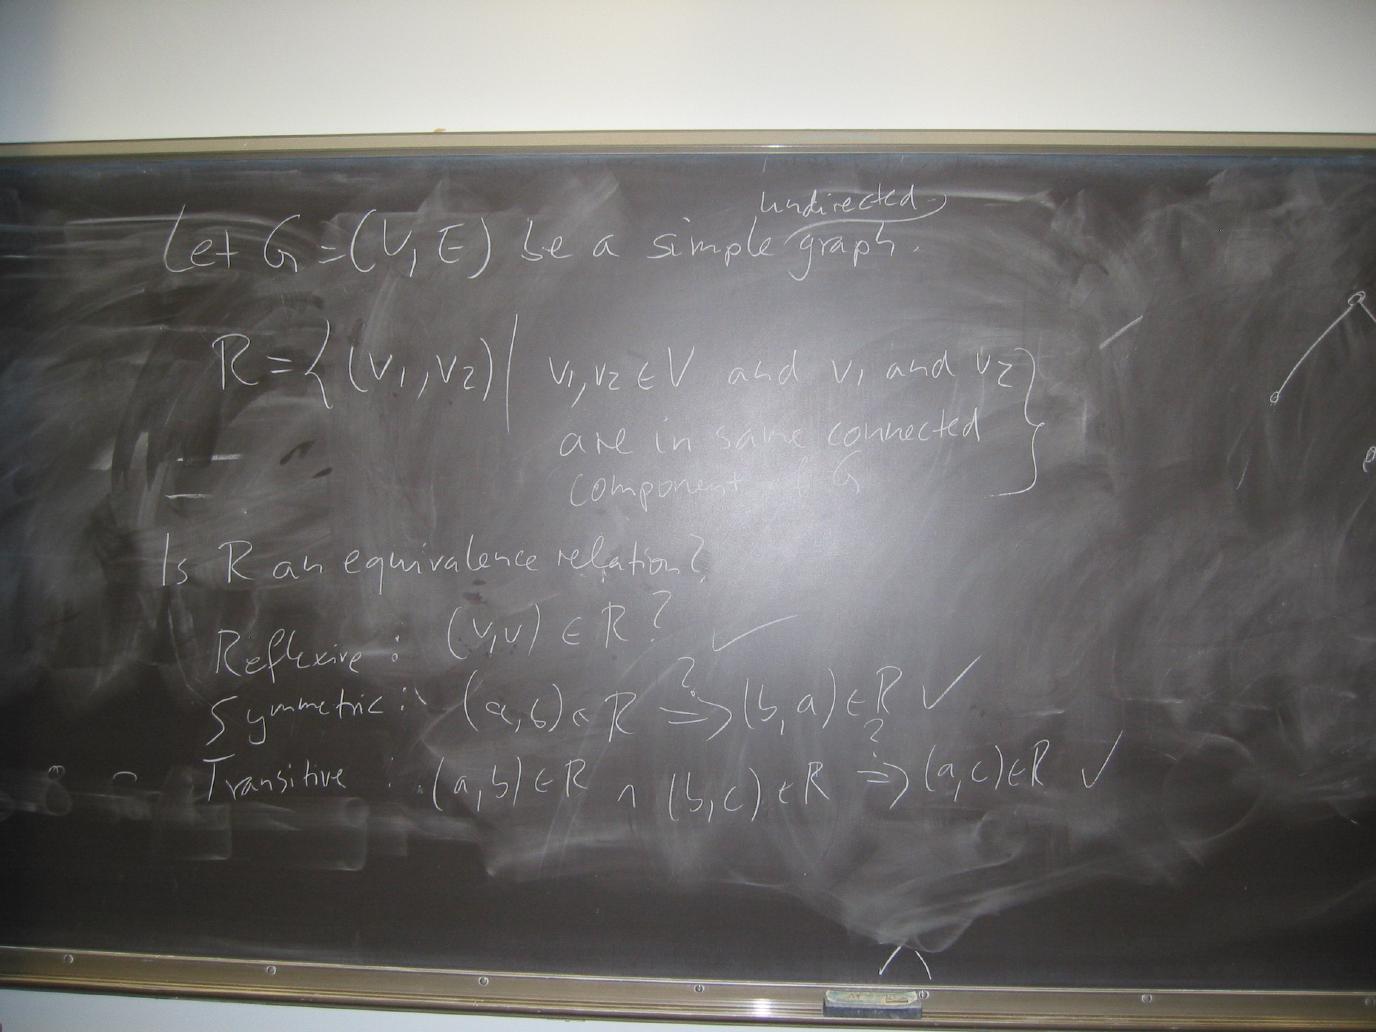 undirected
Let G = (V, E) be a simple graph.
R = { (v1, v2) | v1, v2 ∈ V and v1 and v2
are in same connected
component of G }
Is R an equivalence relation?
Reflexive : (v,v) ∈ R ? ✓
Symmetric : (a,b) ∈ R ?⇒ (b,a) ∈ R ✓
Transitive : (a,b) ∈ R ∧ (b,c) ∈ R ?⇒ (a,c) ∈ R ✓